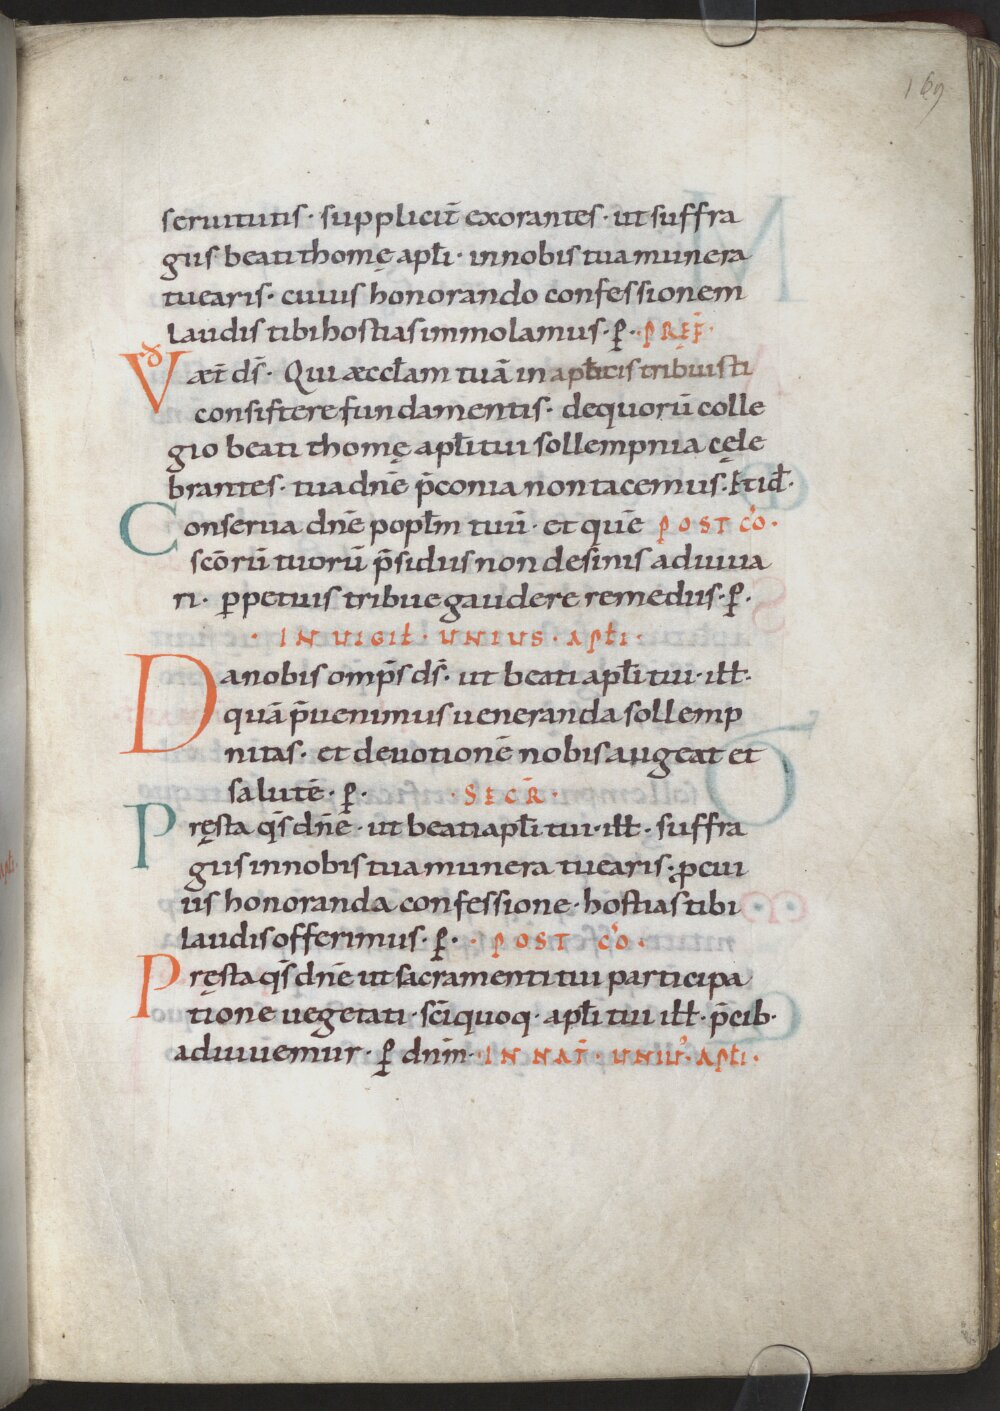 169
seruitutis· supplicit̄ exorantes· ut suffra
giis beati thomę apł̄i· in nobis tua munera
tuearis· cuius honorando confessionem
laudis tibi hostias immolamus· ꝑ· PREF̄·
VD æt̄ dš· Qui æccłam tuā in apłicis tribuisti
consistere fundamentis· de quorū colle
gio beati thomę apłi tui sollempnia cęle
brantes· tua dnē p̄conia non tacemus· Et id·
Conserua dnē popłm tuū· et quē POST CŌ·
scōrū tuorū p̄sidiis non desinis adiuua
ri· ꝑpetuis tribue gaudere remediis· ꝑ·
· IN UIGIŁ· UNIUS· APŁI·
Da nobis omp̄s dš· ut beati apłi tui· iłł·
quā p̄uenimus ueneranda sollemp
nitas· et deuotionē nobis augeat et
salutē· ꝑ· · SECR̄·
Pręsta qš dnē· ut beati apłi tui· iłł· suffra
giis in nobis tua munera tuearis· ꝓ cui
us honoranda confessione· hostias tibi
laudis offerimus· ꝑ· · POST CŌ·
Pręsta qš dnē ut sacramenti tui participa
tione uegetati· scī quoq· apłi tui iłł· p̄cib·
adiuuemur· ꝑ dnm̄· IN NAT̄· UNIUꝰ· APŁI·